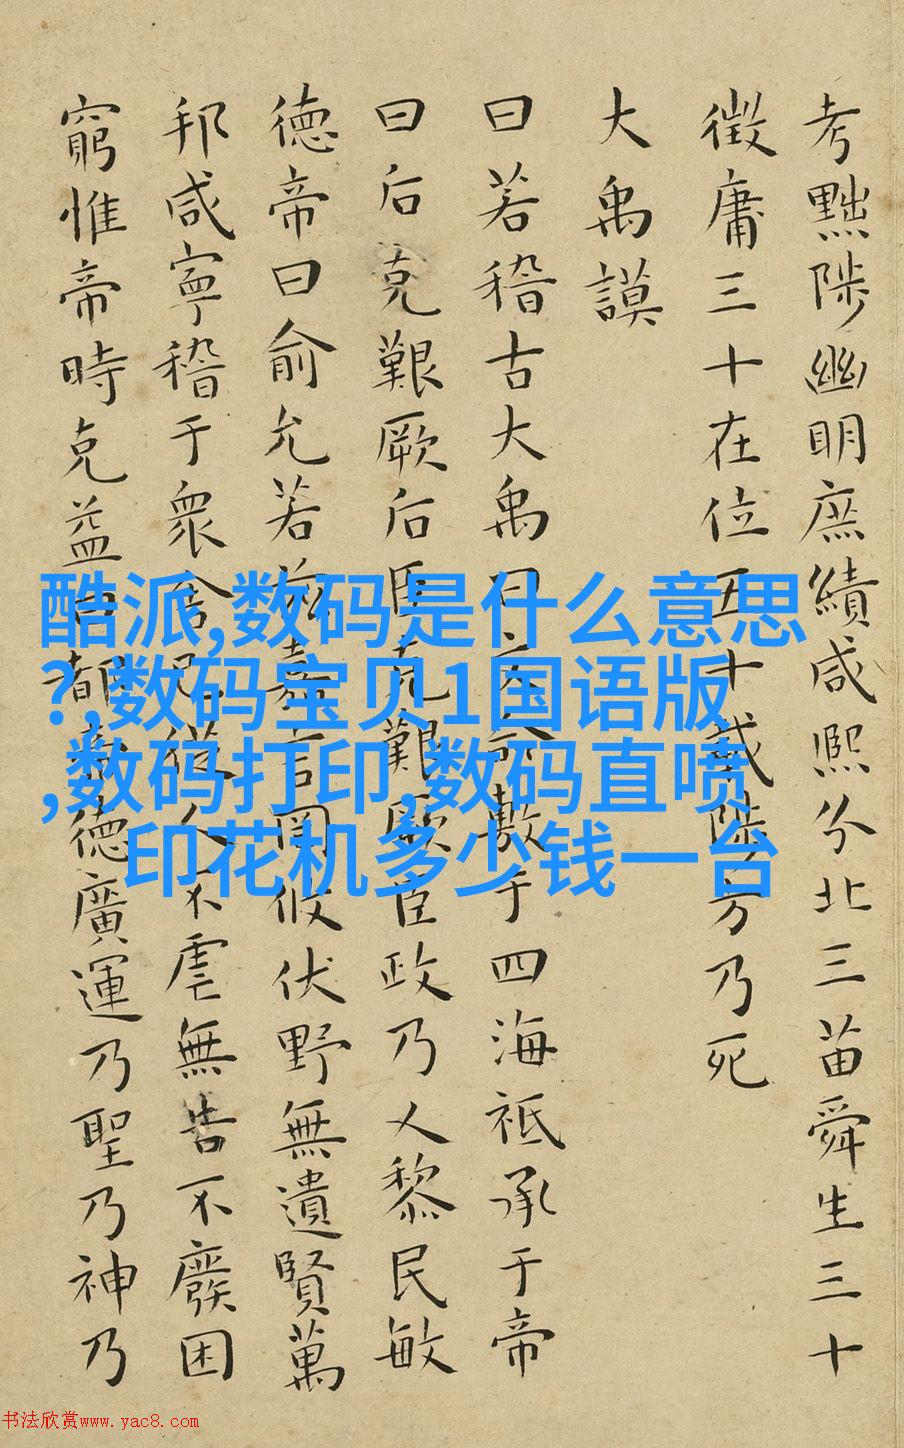 考黜陟幽明庶績咸熙分北三苗舜生三十
徵庸三十在位五十載陟方乃死
大禹謨
曰若稽古大禹曰文命敷于四海祗承于帝
曰后克艱厥后臣克艱厥臣政乃乂黎民敏
德帝曰俞允若茲嘉言罔攸伏野無遺賢萬
邦咸寧稽于衆舍己從人不虐無告不廢困
窮惟帝時克益曰都帝德廣運乃聖乃神乃
酷派,数码是什么意思
?,数码宝贝1国语版
,数码打印,数码直喷
印花机多少钱一台
书法欣赏www.yac8.com